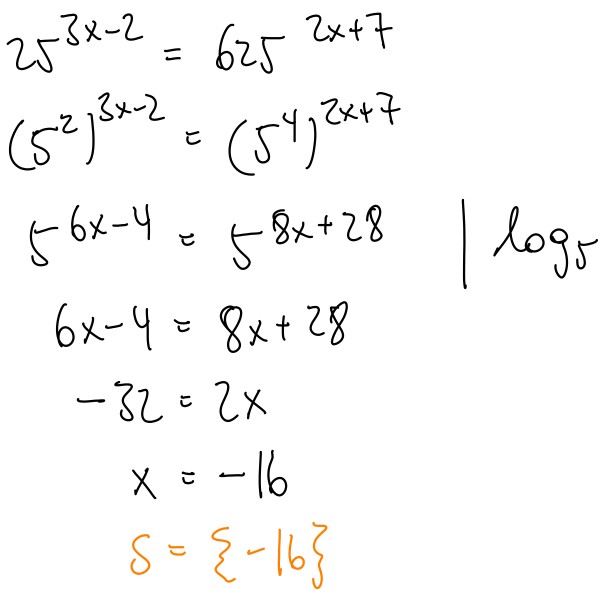 25^{3x-2} = 625^{2x+7}
(5^2)^{3x-2} = (5^4)^{2x+7}
5^{6x-4} = 5^{8x+28} | log_5
6x-4 = 8x+28
-32 = 2x
x = -16
S = {-16}